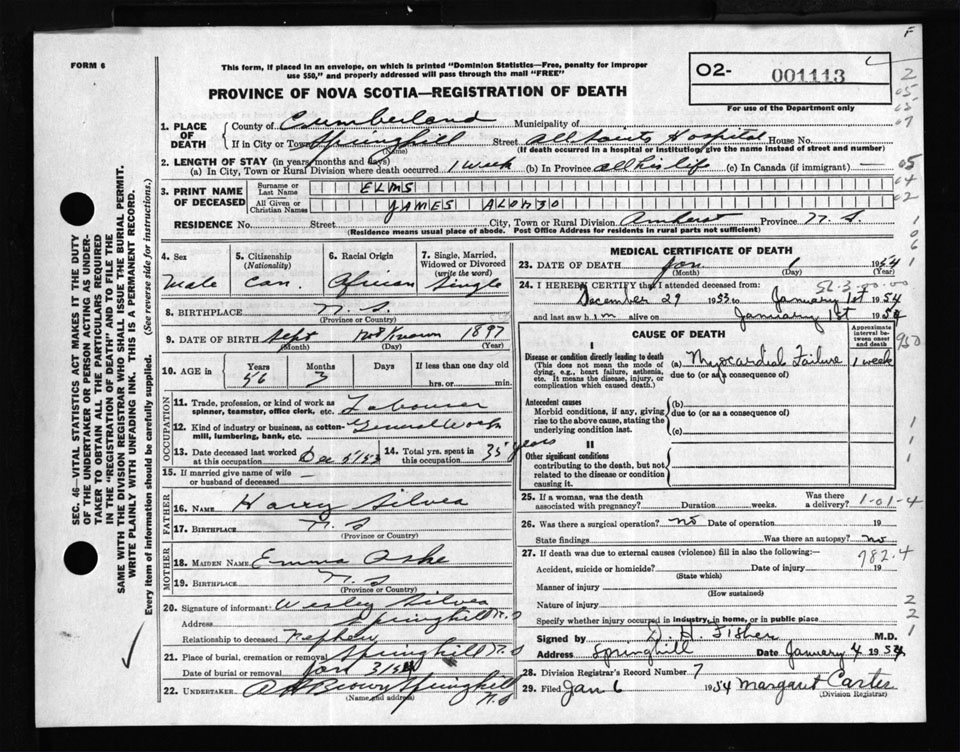 F
FORM 6
This form, if placed in an envelope, on which is printed "Dominion Statistics—Free, penalty for improper
use $50," and properly addressed will pass through the mail "FREE"
02- 001113
For use of the Department only
PROVINCE OF NOVA SCOTIA—REGISTRATION OF DEATH
SEC. 46—VITAL STATISTICS ACT MAKES IT THE DUTY
OF THE UNDERTAKER OR PERSON ACTING AS UNDER-
TAKER TO OBTAIN ALL THE PARTICULARS REQUIRED
IN THE "REGISTRATION OF DEATH" AND TO FILE THE
SAME WITH THE DIVISION REGISTRAR WHO SHALL ISSUE THE BURIAL PERMIT.
WRITE PLAINLY WITH UNFADING INK. THIS IS A PERMANENT RECORD.
Every item of information should be carefully supplied. (See reverse side for instructions.)
1. PLACE OF DEATH
County of Cumberland Municipality of
If in City or Town Springhill (Name) Street All Saints Hospital House No.
(If death occurred in a hospital or institution, give the name instead of street and number)
2. LENGTH OF STAY (in years, months and days)
(a) In City, Town or Rural Division where death occurred 1 week (b) In Province all his life (c) In Canada (if immigrant) —
3. PRINT NAME OF DECEASED
Surname or Last Name ELMS
All Given or Christian Names JAMES ALONZO
RESIDENCE No. Street City, Town or Rural Division Amherst Province N.S.
(Residence means usual place of abode. Post Office Address for residents in rural parts not sufficient)
4. Sex Male
5. Citizenship (Nationality) Can.
6. Racial Origin African
7. Single, Married, Widowed or Divorced (write the word) Single
8. BIRTHPLACE N.S.
(Province or Country)
9. DATE OF BIRTH Sept Not Known 1897
(Month) (Day) (Year)
10. AGE Years 56 Months 3 Days If less than one day old hrs. or min.
OCCUPATION
11. Trade, profession or kind of work as spinner, teamster, office clerk, etc. Labourer
12. Kind of industry or business, as cotton-mill, lumbering, bank, etc. General Work
13. Date deceased last worked at this occupation Dec 5/53
14. Total yrs. spent in this occupation 35 years
15. If married give name of wife or husband of deceased —
FATHER
16. NAME Harry Silvea
17. BIRTHPLACE N.S
(Province or Country)
MOTHER
18. MAIDEN NAME Emma
19. BIRTHPLACE N.S
(Province or Country)
20. Signature of informant Wesley Silvea
Address Springhill N.S
Relationship to deceased Nephew
21. Place of burial, cremation or removal Springhill N.S
Date of burial or removal Jan 3/54
22. UNDERTAKER A H Brown Springhill N.S
(Name and address)
MEDICAL CERTIFICATE OF DEATH
23. DATE OF DEATH Jan. 1 1954
(Month) (Day) (Year)
56-3-00-00
24. I HEREBY CERTIFY that I attended deceased from:
December 29 1953 to January 1st 1954
and last saw him alive on January 1st 1954
CAUSE OF DEATH
Approximate interval between onset and death
I
Disease or condition directly leading to death
(This does not mean the mode of dying, e.g., heart failure, asthenia, etc. It means the disease, injury, or complication which caused death.)
(a) Myocardial Failure 1 week
due to (or as a consequence of)
Antecedent causes
Morbid conditions, if any, giving rise to the above cause, stating the underlying condition last.
(b)
due to (or as a consequence of)
(c)
II
Other significant conditions
contributing to the death, but not related to the disease or condition causing it.
25. If a woman, was the death associated with pregnancy? Duration weeks. Was there a delivery?
1-01-4
26. Was there a surgical operation? no Date of operation 19
State findings Was there an autopsy? no
782.4
27. If death was due to external causes (violence) fill in also the following:—
Accident, suicide or homicide? Date of injury 19
(State which)
Manner of injury
(How sustained)
Nature of injury
Specify whether injury occurred in industry, in home, or in public place
Signed by D. H. Fisher M.D.
Address Springhill Date January 4 1954
28. Division Registrar's Record Number 7
29. Filed Jan 6 1954 Margaret Carter
(Division Registrar)